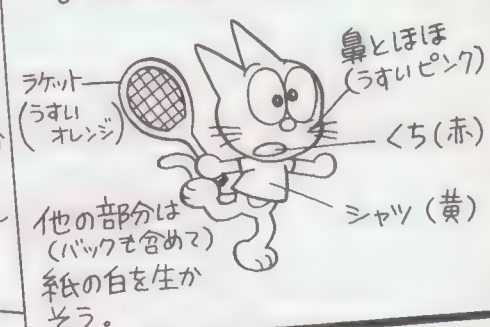 ラケット
(うすい
オレンジ)
鼻とほほ
(うすいピンク)
くち(赤)
シャツ(黄)
他の部分は
(バックも含めて)
紙の白を生か
そう。